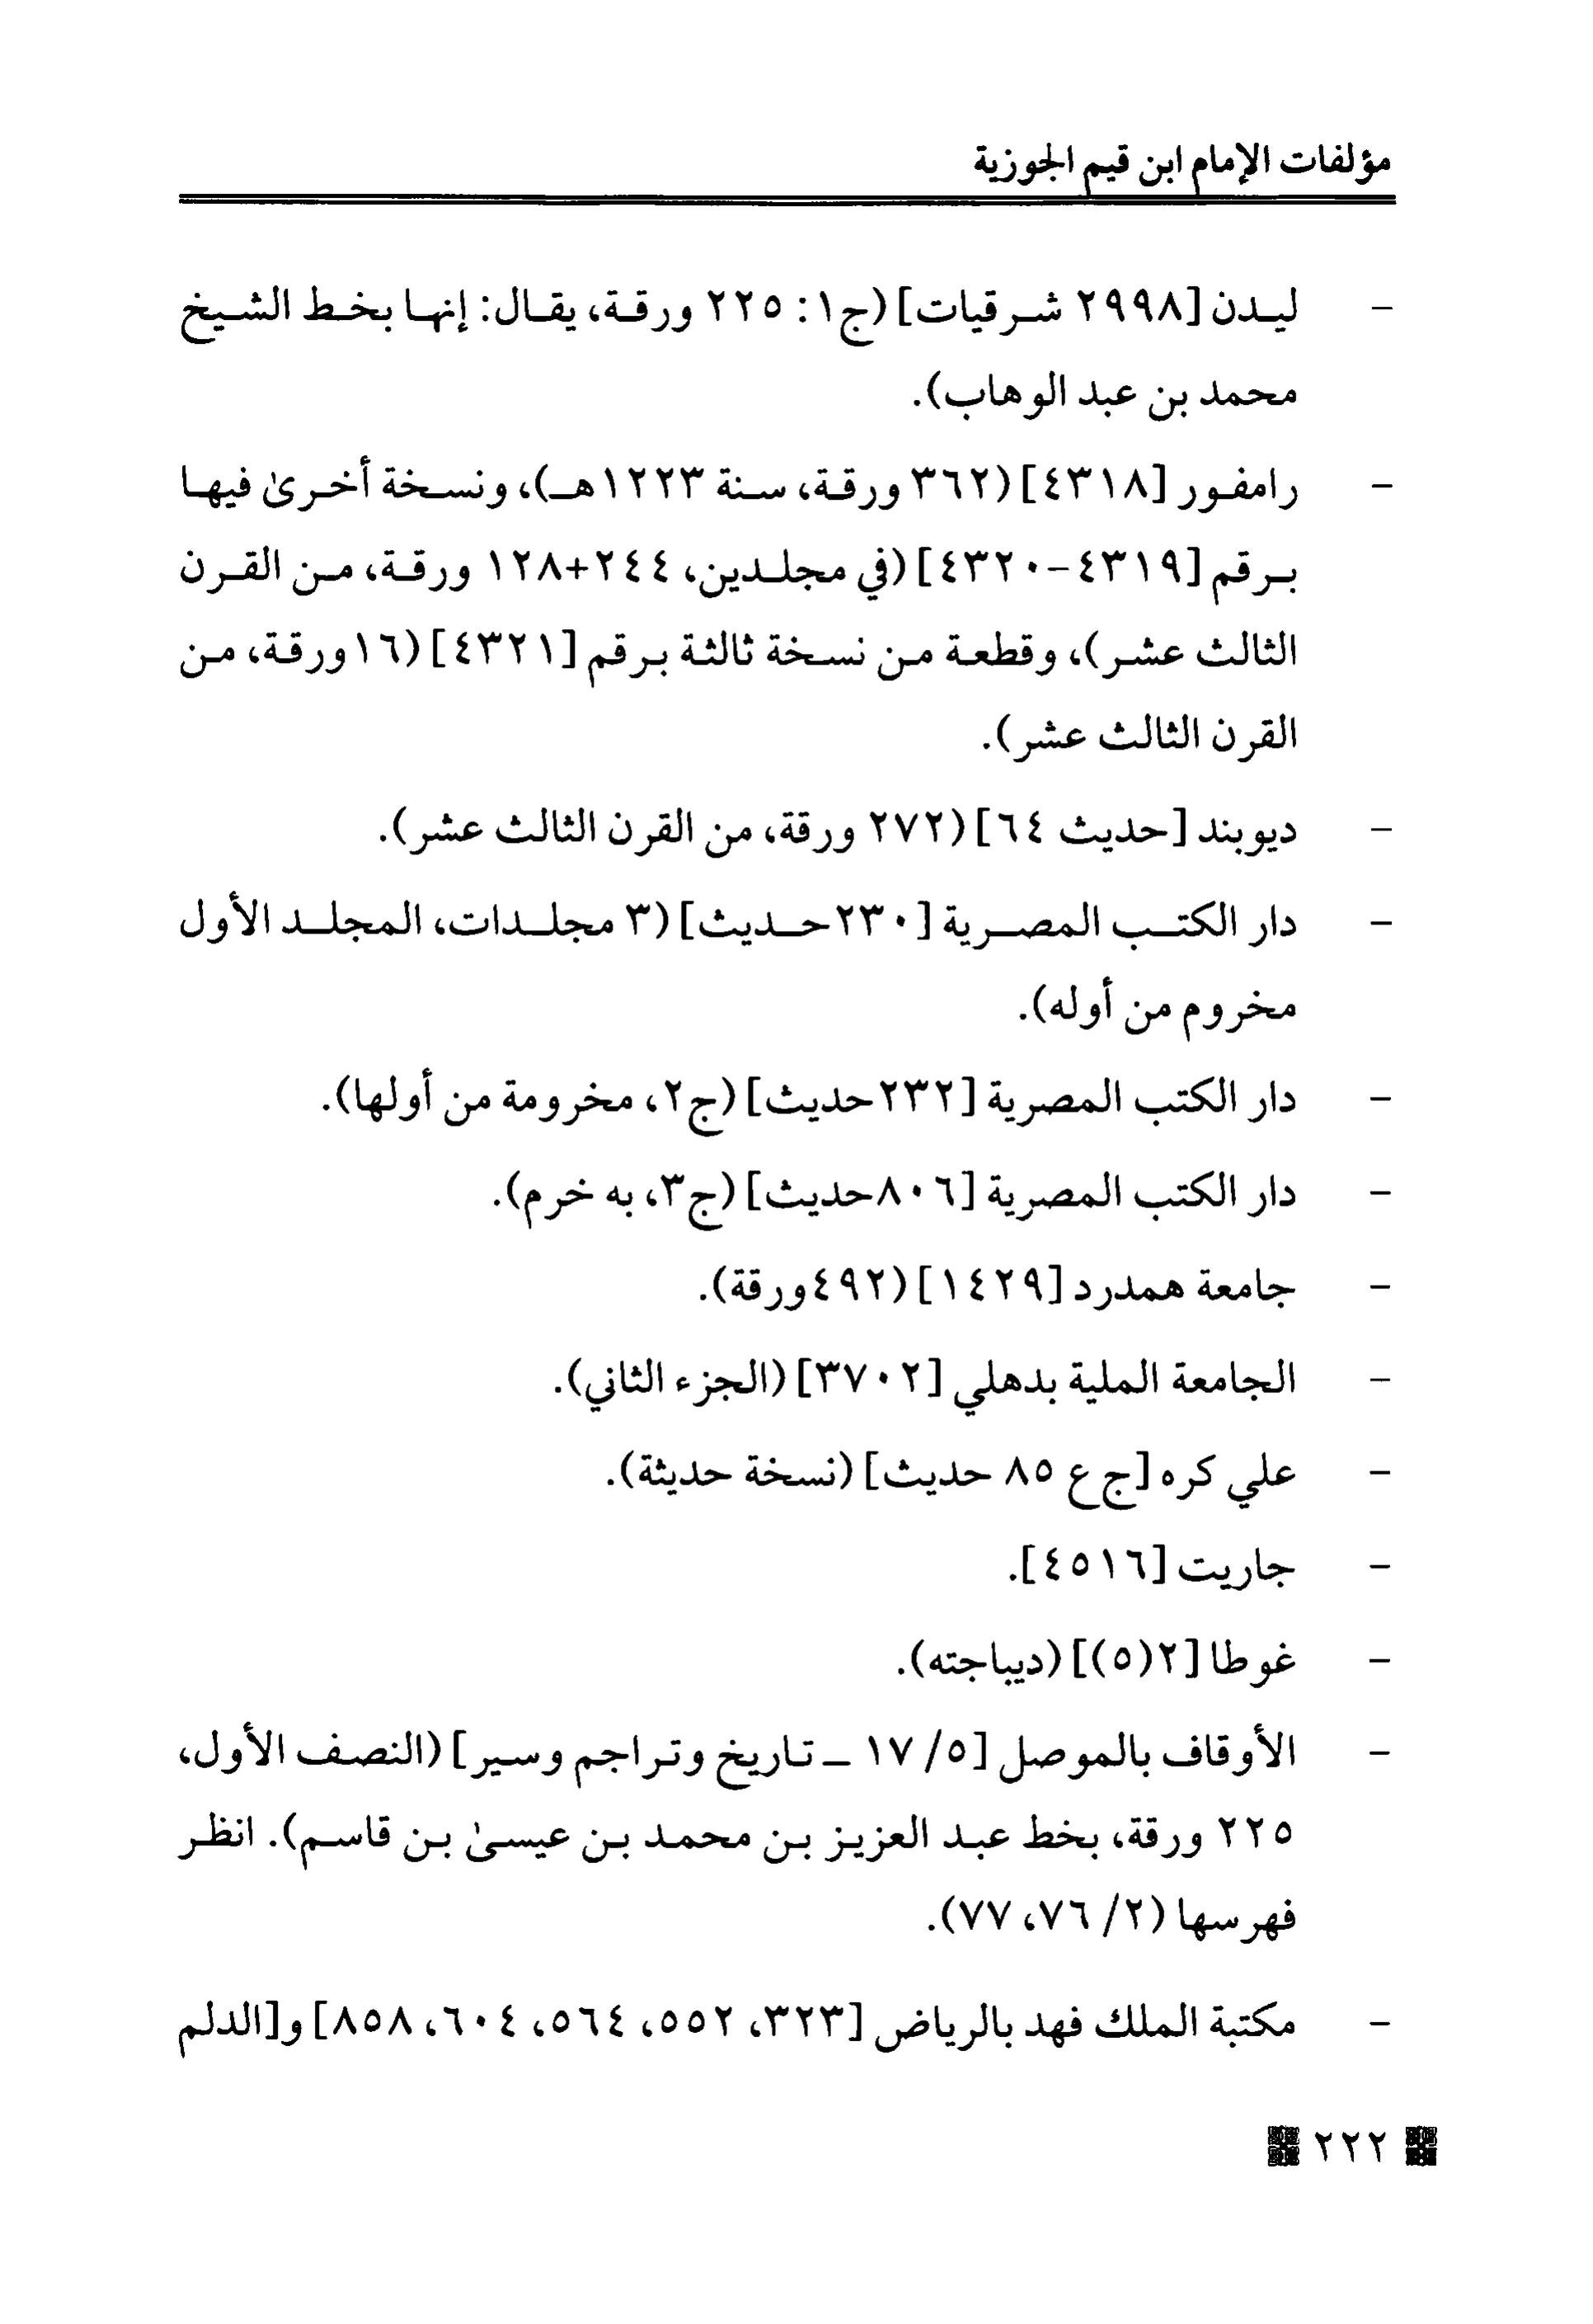 مؤلفات الإمام ابن قيم الجوزية
- ليدن [٢٩٩٨ شرقيات] (ج١: ٢٢٥ ورقة، يقال: إنها بخط الشيخ
محمد بن عبد الوهاب).
- رامفور [٤٣١٨] (٣٦٢ ورقة، سنة ١٢٢٣هـ)، ونسخة أخرىٰ فيها
برقم [٤٣١٩-٤٣٢٠] (في مجلدين، ٢٤٤+١٢٨ ورقة، من القرن
الثالث عشر)، وقطعة من نسخة ثالثة برقم [٤٣٢١] (١٦ورقة، من
القرن الثالث عشر).
- ديوبند [حديث ٦٤] (٢٧٢ ورقة، من القرن الثالث عشر).
- دار الكتب المصرية [٢٣٠حديث] (٣ مجلدات، المجلد الأول
مخروم من أوله).
- دار الكتب المصرية [٢٣٢حديث] (ج٢، مخرومة من أولها).
- دار الكتب المصرية [٨٠٦حديث] (ج٣، به خرم).
- جامعة همدرد [١٤٢٩] (٤٩٢ورقة).
- الجامعة الملية بدهلي [٣٧٠٢] (الجزء الثاني).
- علي كره [ج ع ٨٥ حديث] (نسخة حديثة).
- جاريت [٤٥١٦].
- غوطا [٢(٥)] (ديباجته).
- الأوقاف بالموصل [٥/ ١٧ – تاريخ وتراجم وسير] (النصف الأول،
٢٢٥ ورقة، بخط عبد العزيز بن محمد بن عيسىٰ بن قاسم). انظر
فهرسها (٢/ ٧٦، ٧٧).
- مكتبة الملك فهد بالرياض [٣٢٣، ٥٥٢، ٥٦٤، ٦٠٤، ٨٥٨] و[الدلم
٢٢٢